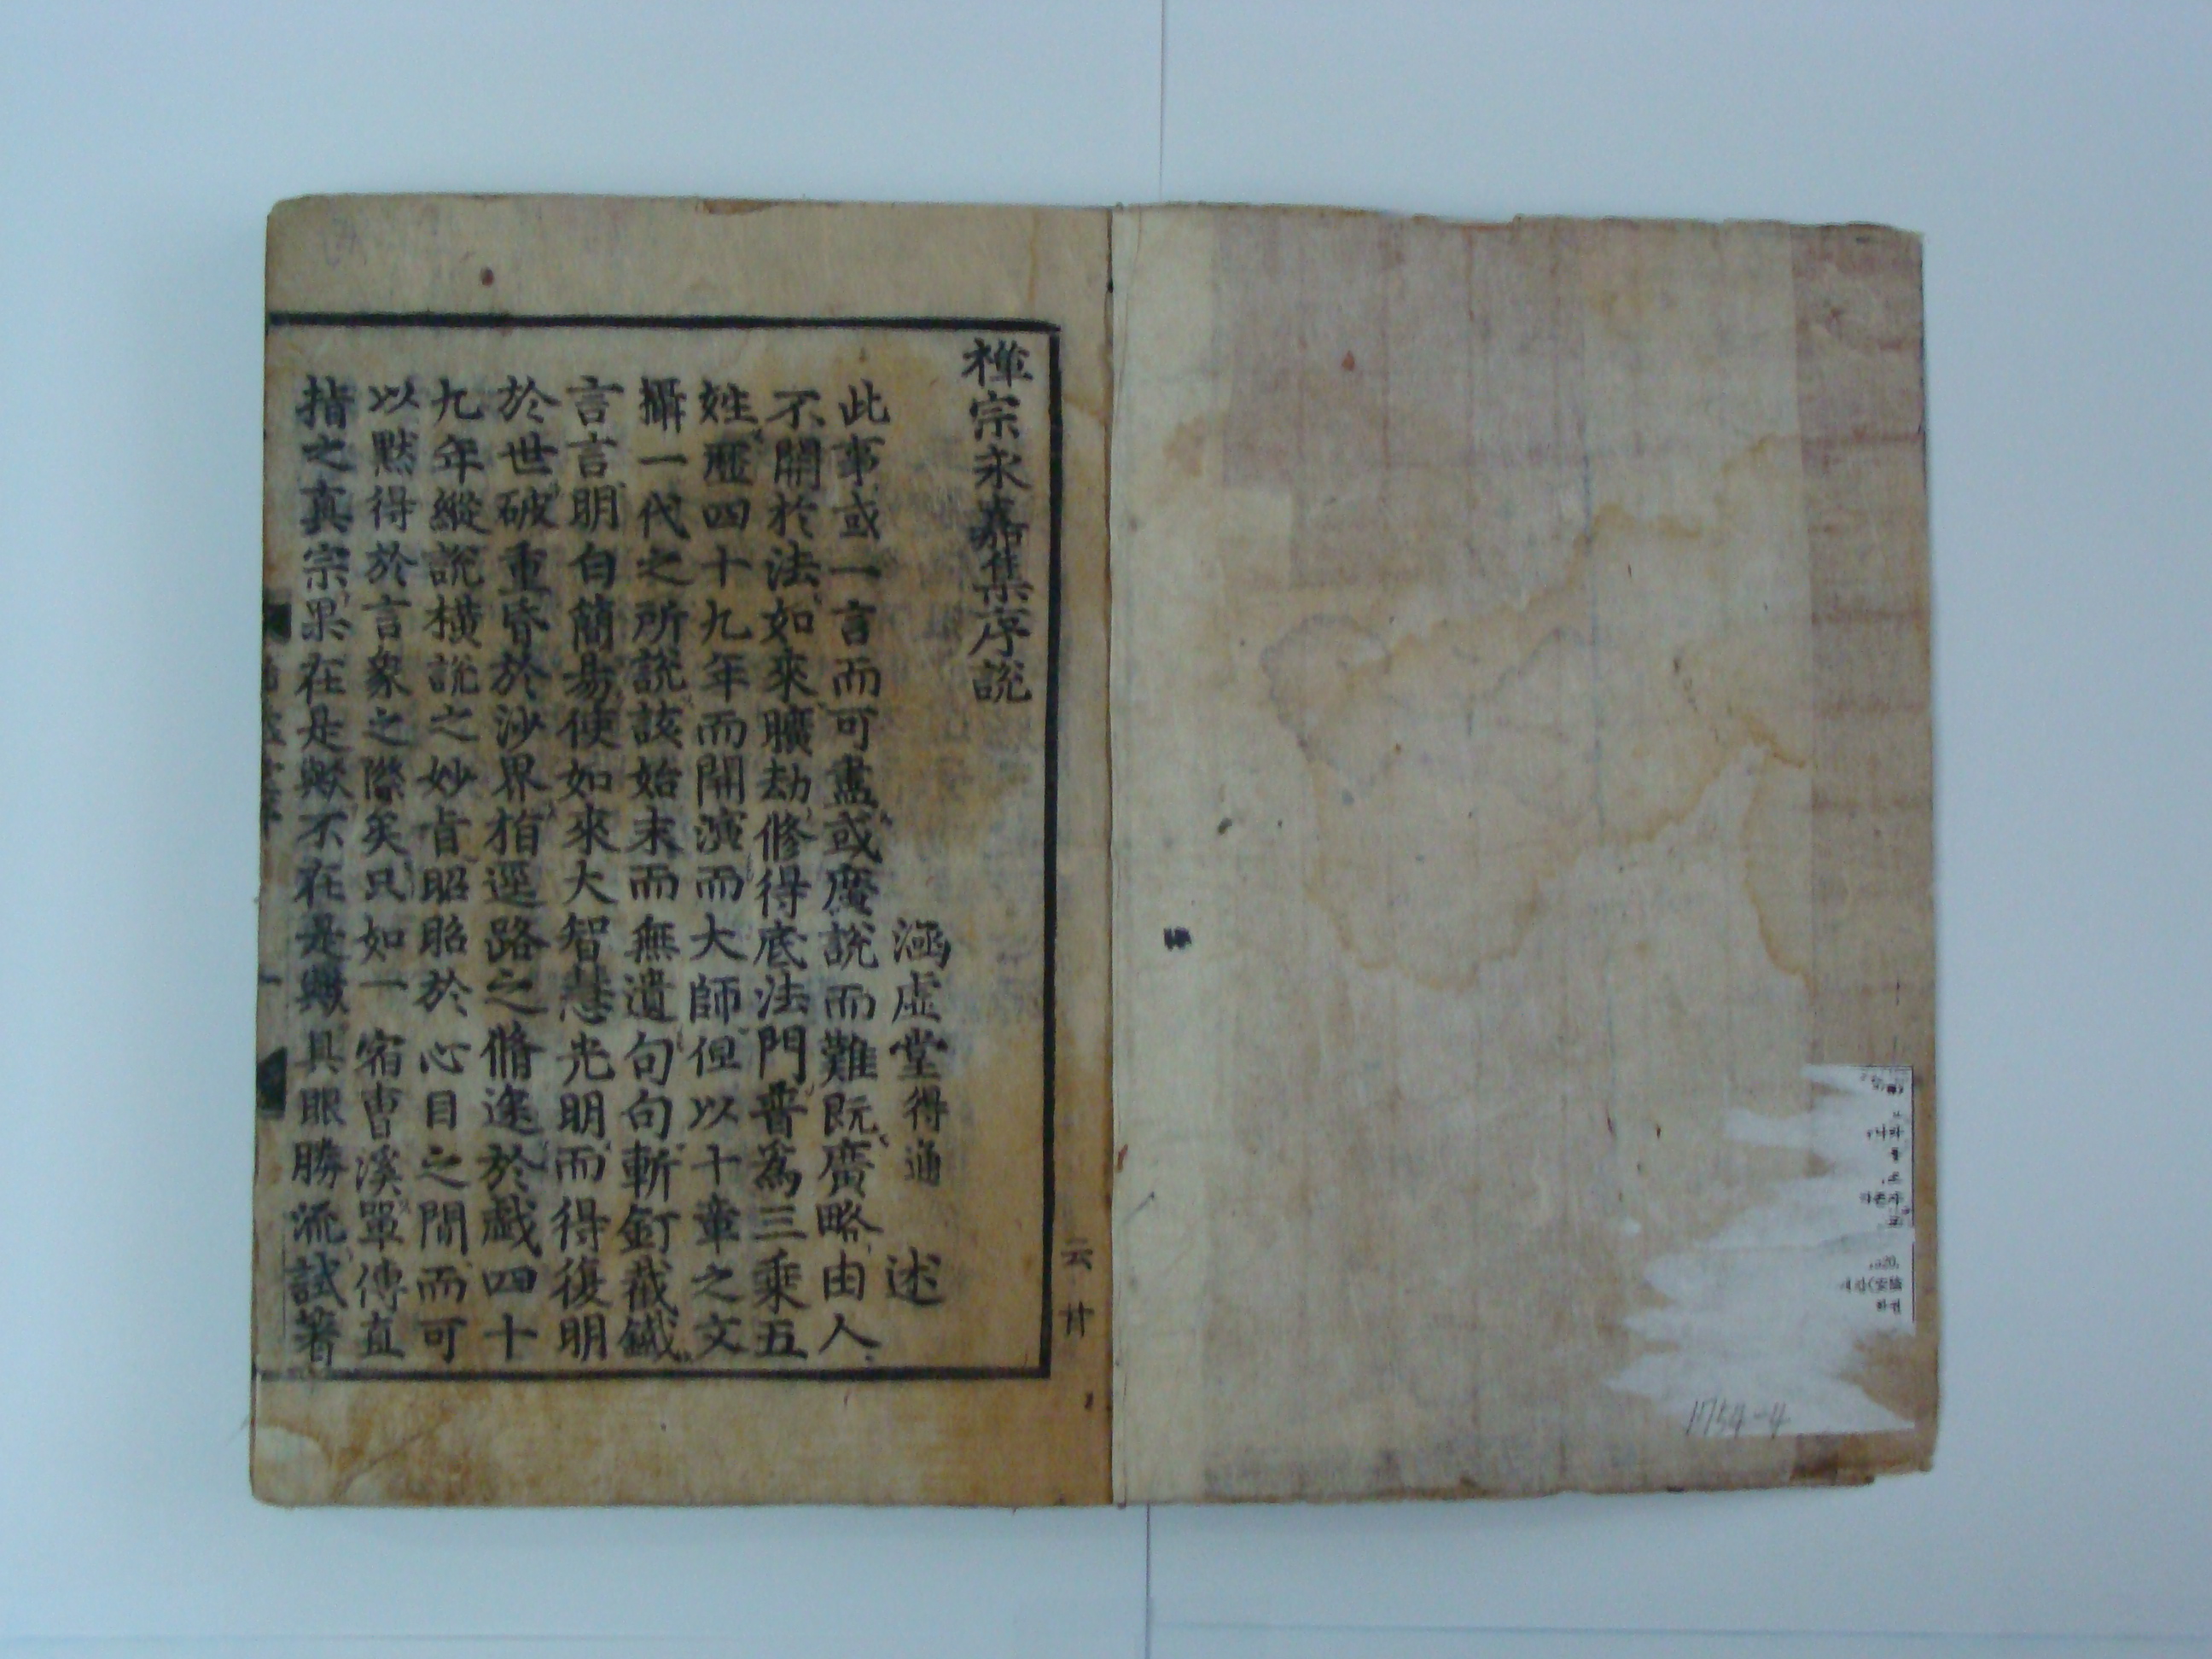 禪宗永嘉集序說
涵虛堂得通 述
此事或一言而可盡或廣說而難既廣略由人
不關於法如來曠劫修得底法門普爲三乘五
姓歷四十九年而開演而大師但以十章之文
攝一代之所說該始末而無遺句句斬釘截鐵
言言明白簡易使如來大智慧光明而得復明
於世破重昏於沙界指逕路之脩途於戲四十
九年縱說橫說之妙旨昭昭於心目之間而可
以默得於言象之際矣只如一宿曹溪單傳直
指之真宗果在是歟不在是歟具眼勝流試著
云 廿
1754-4